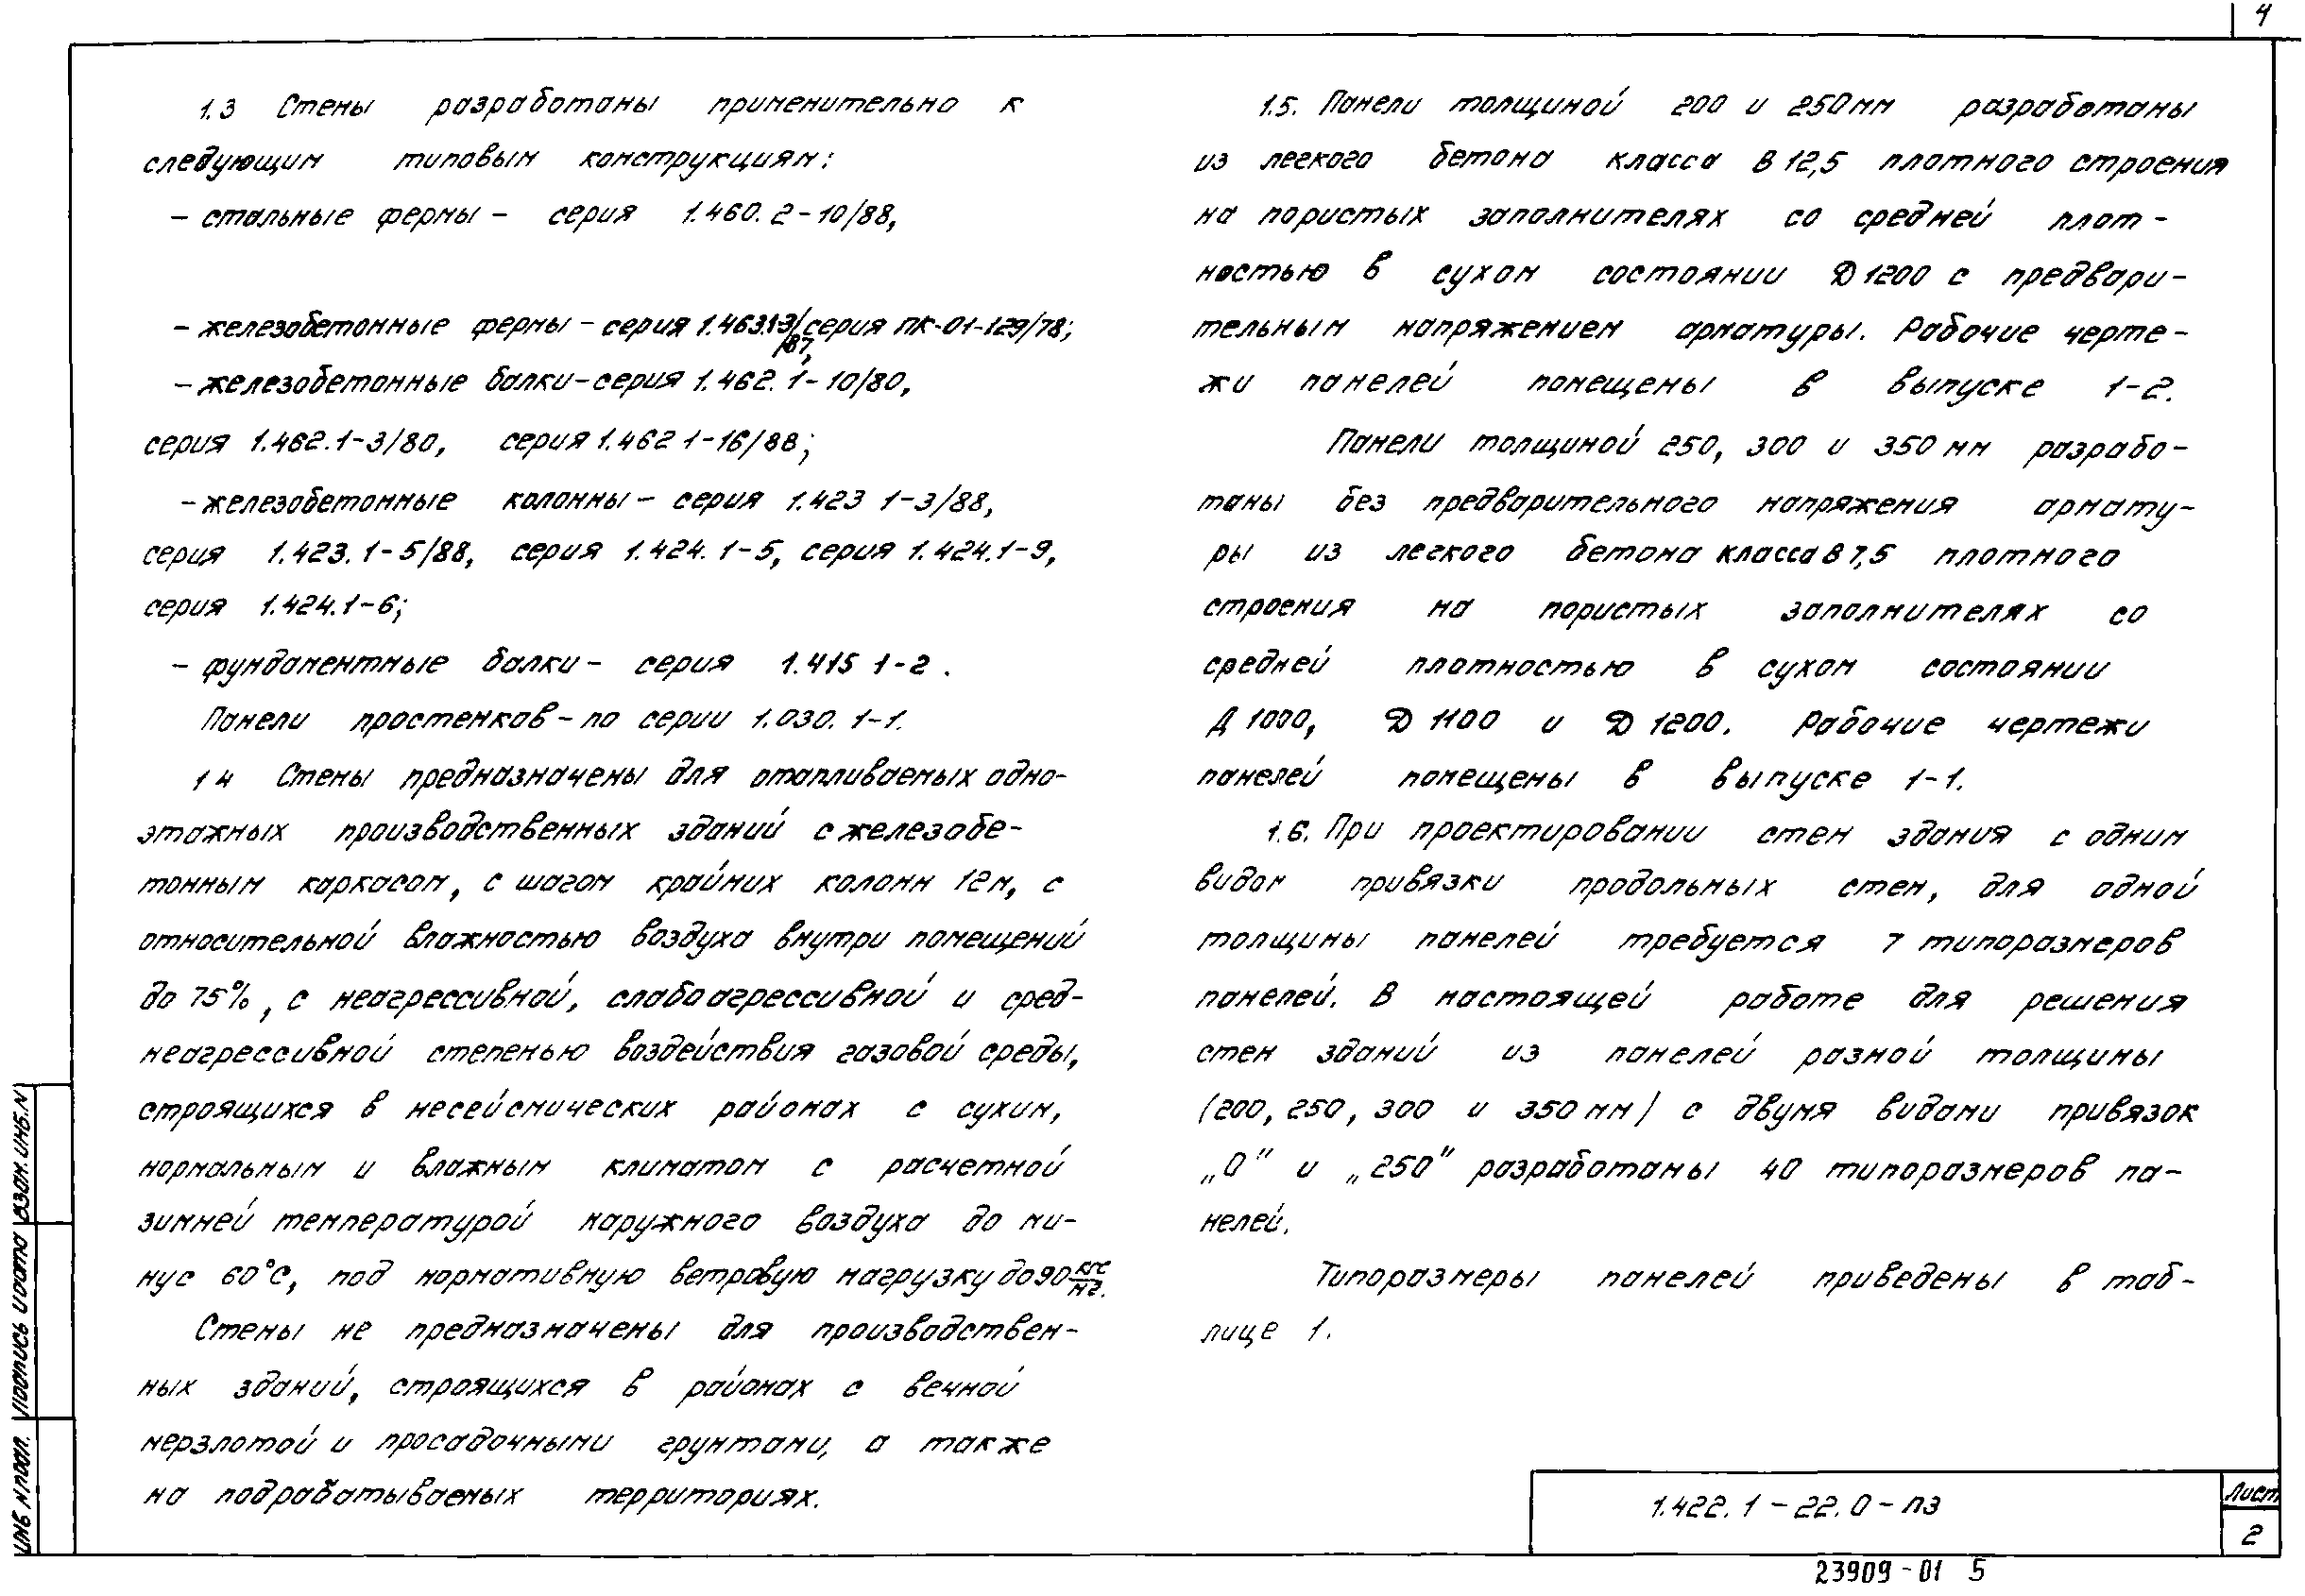 4
1.3 Стены разработаны применительно к
следующим типовым конструкциям:
– стальные фермы – серия 1.460.2–10/88,
– железобетонные фермы – серия 1.463.1-3/87, серия ПК-01-129/78;
– железобетонные балки – серия 1.462.1–10/80,
серия 1.462.1–3/80, серия 1.462 1–16/88;
– железобетонные колонны – серия 1.423 1–3/88,
серия 1.423.1–5/88, серия 1.424.1–5, серия 1.424.1–9,
серия 1.424.1–6;
– фундаментные балки – серия 1.415 1–2.
Панели простенков – по серии 1.030.1–1.
1 4 Стены предназначены для отапливаемых одно-
этажных производственных зданий с железобе-
тонным каркасом, с шагом крайних колонн 12м, с
относительной влажностью воздуха внутри помещений
до 75%, с неагрессивной, слабоагрессивной и сред-
неагрессивной степенью воздействия газовой среды,
строящихся в несейсмических районах с сухим,
нормальным и влажным климатом с расчетной
зимней температурой наружного воздуха до ми-
нус 60°С, под нормативную ветровую нагрузку до 90 кгс/м².
Стены не предназначены для производствен-
ных зданий, строящихся в районах с вечной
мерзлотой и просадочными грунтами, а также
на подрабатываемых территориях.
1.5. Панели толщиной 200 и 250мм разработаны
из легкого бетона класса В 12,5 плотного строения
на пористых заполнителях со средней плот-
ностью в сухом состоянии Д 1200 с предвари-
тельным напряжением арматуры. Рабочие черте-
жи панелей помещены в выпуске 1–2.
Панели толщиной 250, 300 и 350 мм разрабо-
таны без предварительного напряжения армату-
ры из легкого бетона класса В 7,5 плотного
строения на пористых заполнителях со
средней плотностью в сухом состоянии
Д 1000, Д 1100 и Д 1200. Рабочие чертежи
панелей помещены в выпуске 1–1.
1.6. При проектировании стен здания с одним
видом привязки продольных стен, для одной
толщины панелей требуется 7 типоразмеров
панелей. В настоящей работе для решения
стен зданий из панелей разной толщины
(200, 250, 300 и 350 мм) с двумя видами привязок
„0" и „250" разработаны 40 типоразмеров па-
нелей.
Типоразмеры панелей приведены в таб-
лице 1.
Инв N подл. Подпись и дата Взам. инв. N
1.422.1–22.0–ПЗ
Лист
2
23909-01 5